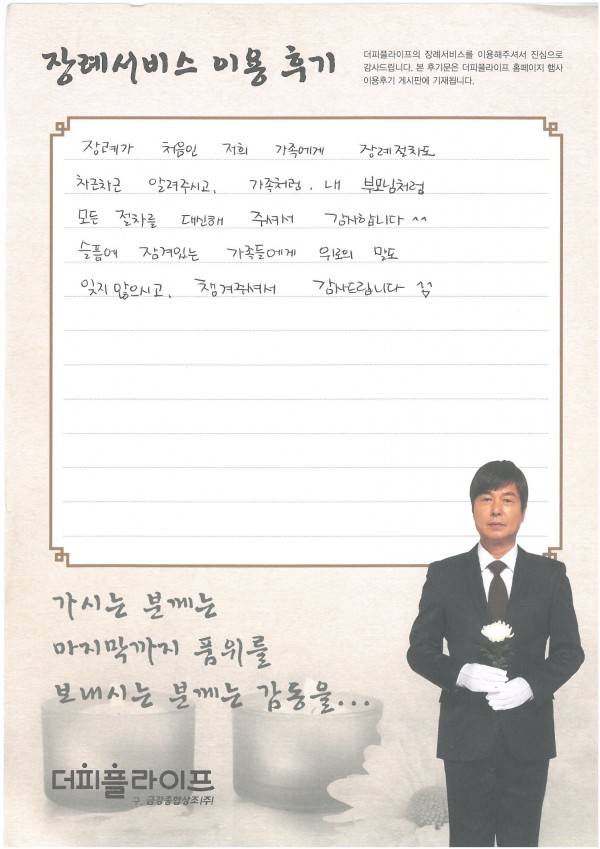 장례서비스 이용 후기
더피플라이프의 장례서비스를 이용해주셔서 진심으로
감사드립니다. 본 후기문은 더피플라이프 홈페이지 행사
이용후기 게시판에 기재됩니다.
장례가 처음인 저희 가족에게 장례절차도
차근차근 알려주시고, 가족처럼, 내 부모님처럼
모든 절차를 대신해 주셔서 감사합니다 ^^
슬픔에 잠겨있는 가족들에게 위로의 말도
잊지 않으시고, 챙겨주셔서 감사드립니다 꾸벅
가시는 분께는
마지막까지 품위를
보내시는 분께는 감동을...
더피플라이프
구. 금강종합상조(주)